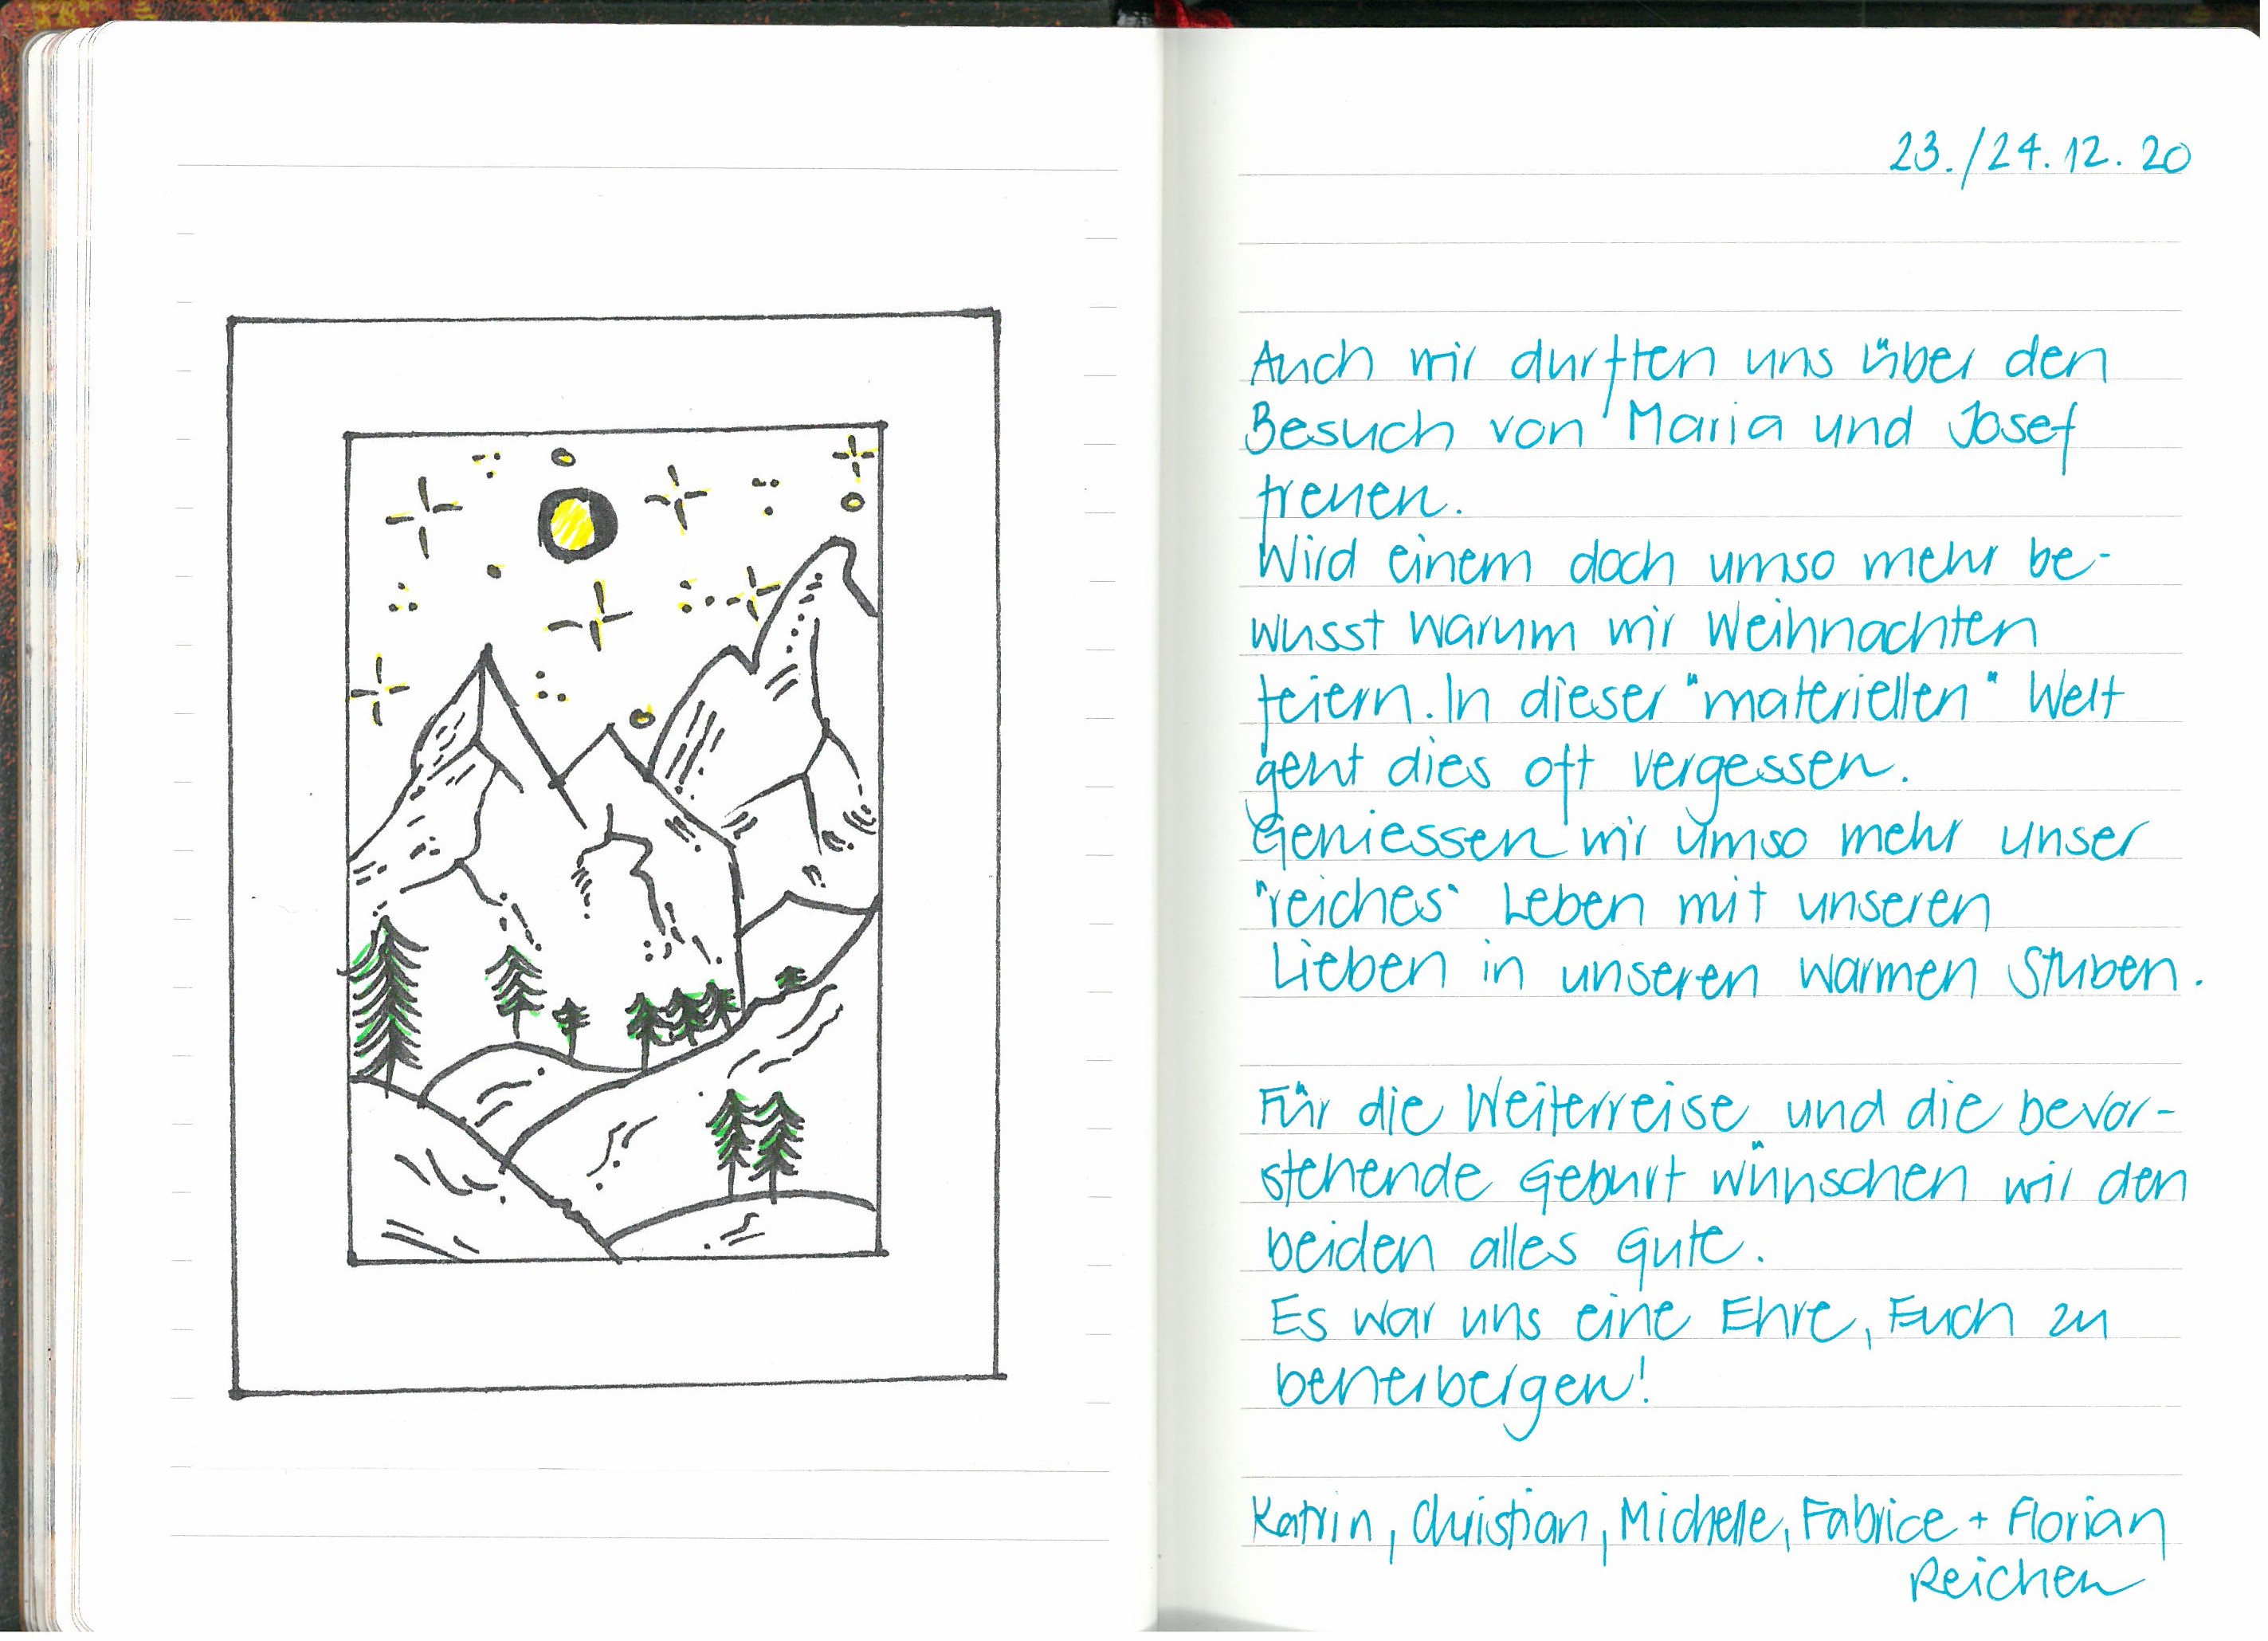 23./24.12.20
Auch wir durften uns über den
Besuch von Maria und Josef
freuen.
Wird einem doch umso mehr be-
wusst warum wir Weihnachten
feiern. In dieser "materiellen" Welt
geht dies oft vergessen.
Geniessen wir umso mehr unser
"reiches" Leben mit unseren
Lieben in unseren warmen Stuben.
Für die Weiterreise und die bevor-
stehende Geburt wünschen wir den
beiden alles Gute.
Es war uns eine Ehre, Euch zu
beherbergen!
Katrin, Christian, Michelle, Fabrice + Florian
Reichen